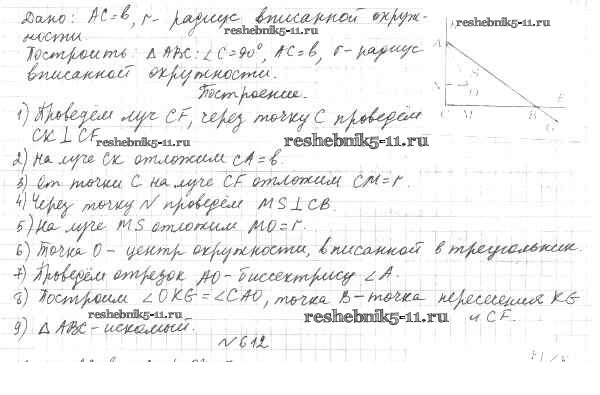 Дано: AC=b, r- радиус вписанной окруж-
ности.
reshebnik5-11.ru
Построить: △ABC: ∠C=90°, AC=b, r-радиус
вписанной окружности.
reshebnik5-11.ru
Построение.
1) Проведём луч CF, через точку C проведём
CK⊥CF
reshebnik5-11.ru
reshebnik5-11.ru
2) На луче CK отложим CA=b.
3) От точки C на луче CF отложим CM=r.
4) Через точку N проведём MS⊥CB.
5) На луче MS отложим MO=r.
6) Точка O- центр окружности, вписанной в треугольник.
7) Проведём отрезок AO-биссектрису ∠A.
8) Построим ∠OKG=∠CAO, точка B-точка пересечения KG
и CF.
reshebnik5-11.ru
reshebnik5-11.ru
9) △ABC-искомый.
№612
reshebnik5-11.ru
A
S
N
O
C M B F
G